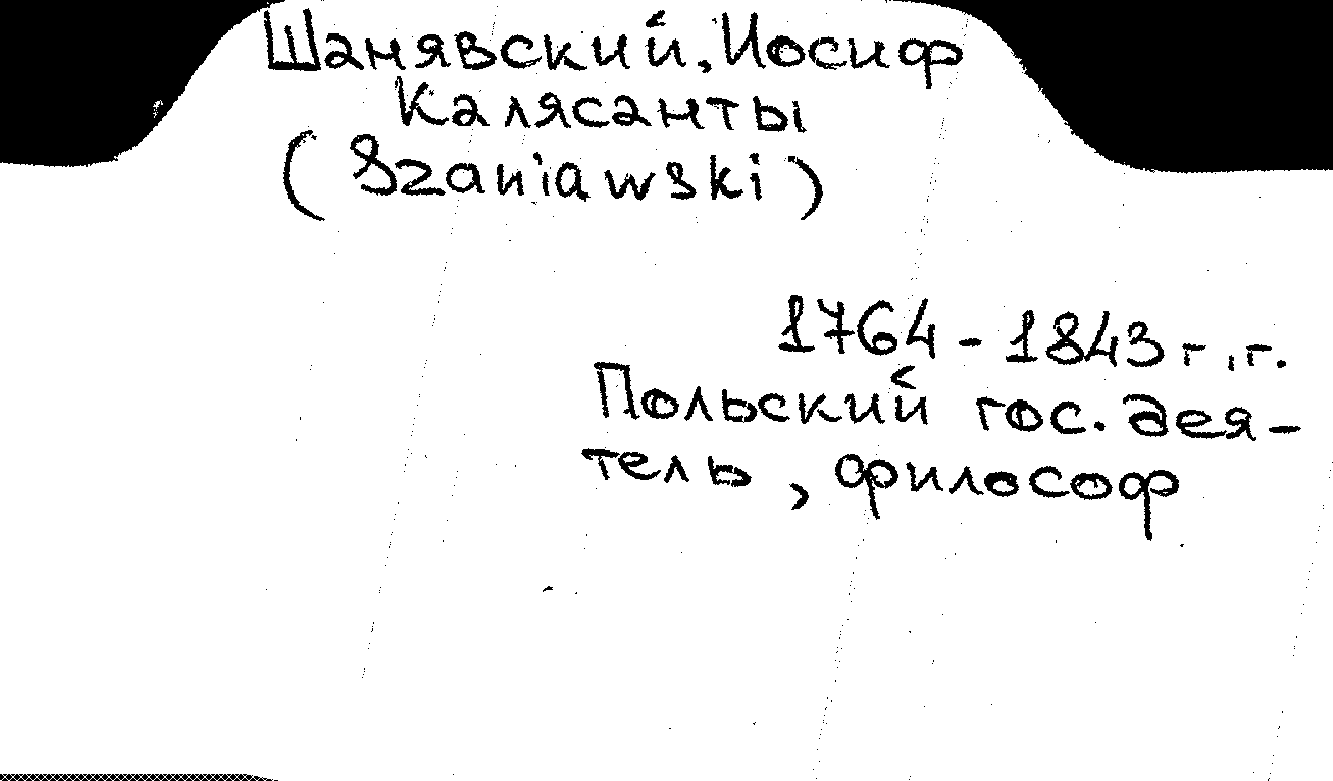 Шанявский, Иосиф
Калясанты
(Szaniawski)
1764 - 1843 г.г.
Польский гос. дея-
тель, философ